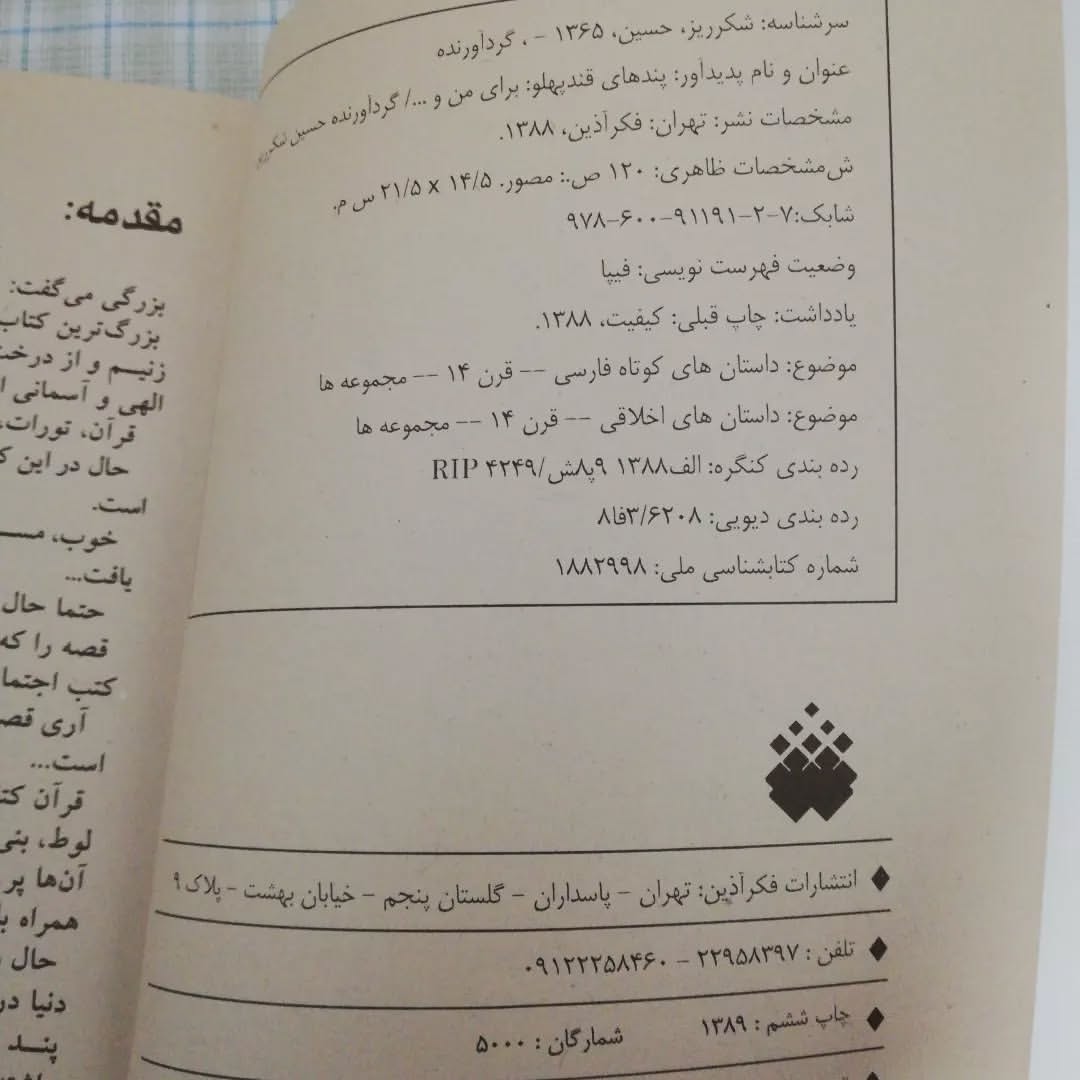 سرشناسه: شکرریز، حسین، ۱۳۶۵ - ، گردآورنده
عنوان و نام پدیدآور: پندهای قندپهلو: برای من و .../ گردآورنده حسین شکرریز
مشخصات نشر: تهران: فکرآذین، ۱۳۸۸.
ش‌مشخصات ظاهری: ۱۲۰ ص.: مصور. ۱۴/۵ x ۲۱/۵ س م.
شابک:۷-۲-۹۱۱۹۱-۶۰۰-۹۷۸
وضعیت فهرست نویسی: فیپا
یادداشت: چاپ قبلی: کیفیت، ۱۳۸۸.
موضوع: داستان های کوتاه فارسی -- قرن ۱۴ -- مجموعه ها
موضوع: داستان های اخلاقی -- قرن ۱۴ -- مجموعه ها
رده بندی کنگره: الف۱۳۸۸ ۹پ۸ش/۴۲۴۹ RIP
رده بندی دیویی: ۳/۶۲۰۸فا۸
شماره کتابشناسی ملی: ۱۸۸۲۹۹۸
انتشارات فکرآذین: تهران - پاسداران - گلستان پنجم - خیابان بهشت - پلاک ۹
تلفن : ۲۲۹۵۸۳۹۷ - ۰۹۱۲۲۲۵۸۴۶۰
چاپ ششم : ۱۳۸۹ شمارگان : ۵۰۰۰
مقدمه:
بزرگی می‌گفت:
بزرگ‌ترین کتاب
زنیم و از درخت
الهی و آسمانی
قرآن، تورات،
حال در این
است.
خوب،
یافت...
حتما حال
قصه را که
کتب
آری
است...
قرآن
لوط، بنی
آن‌ها پر
همراه
حال
دنیا
پند